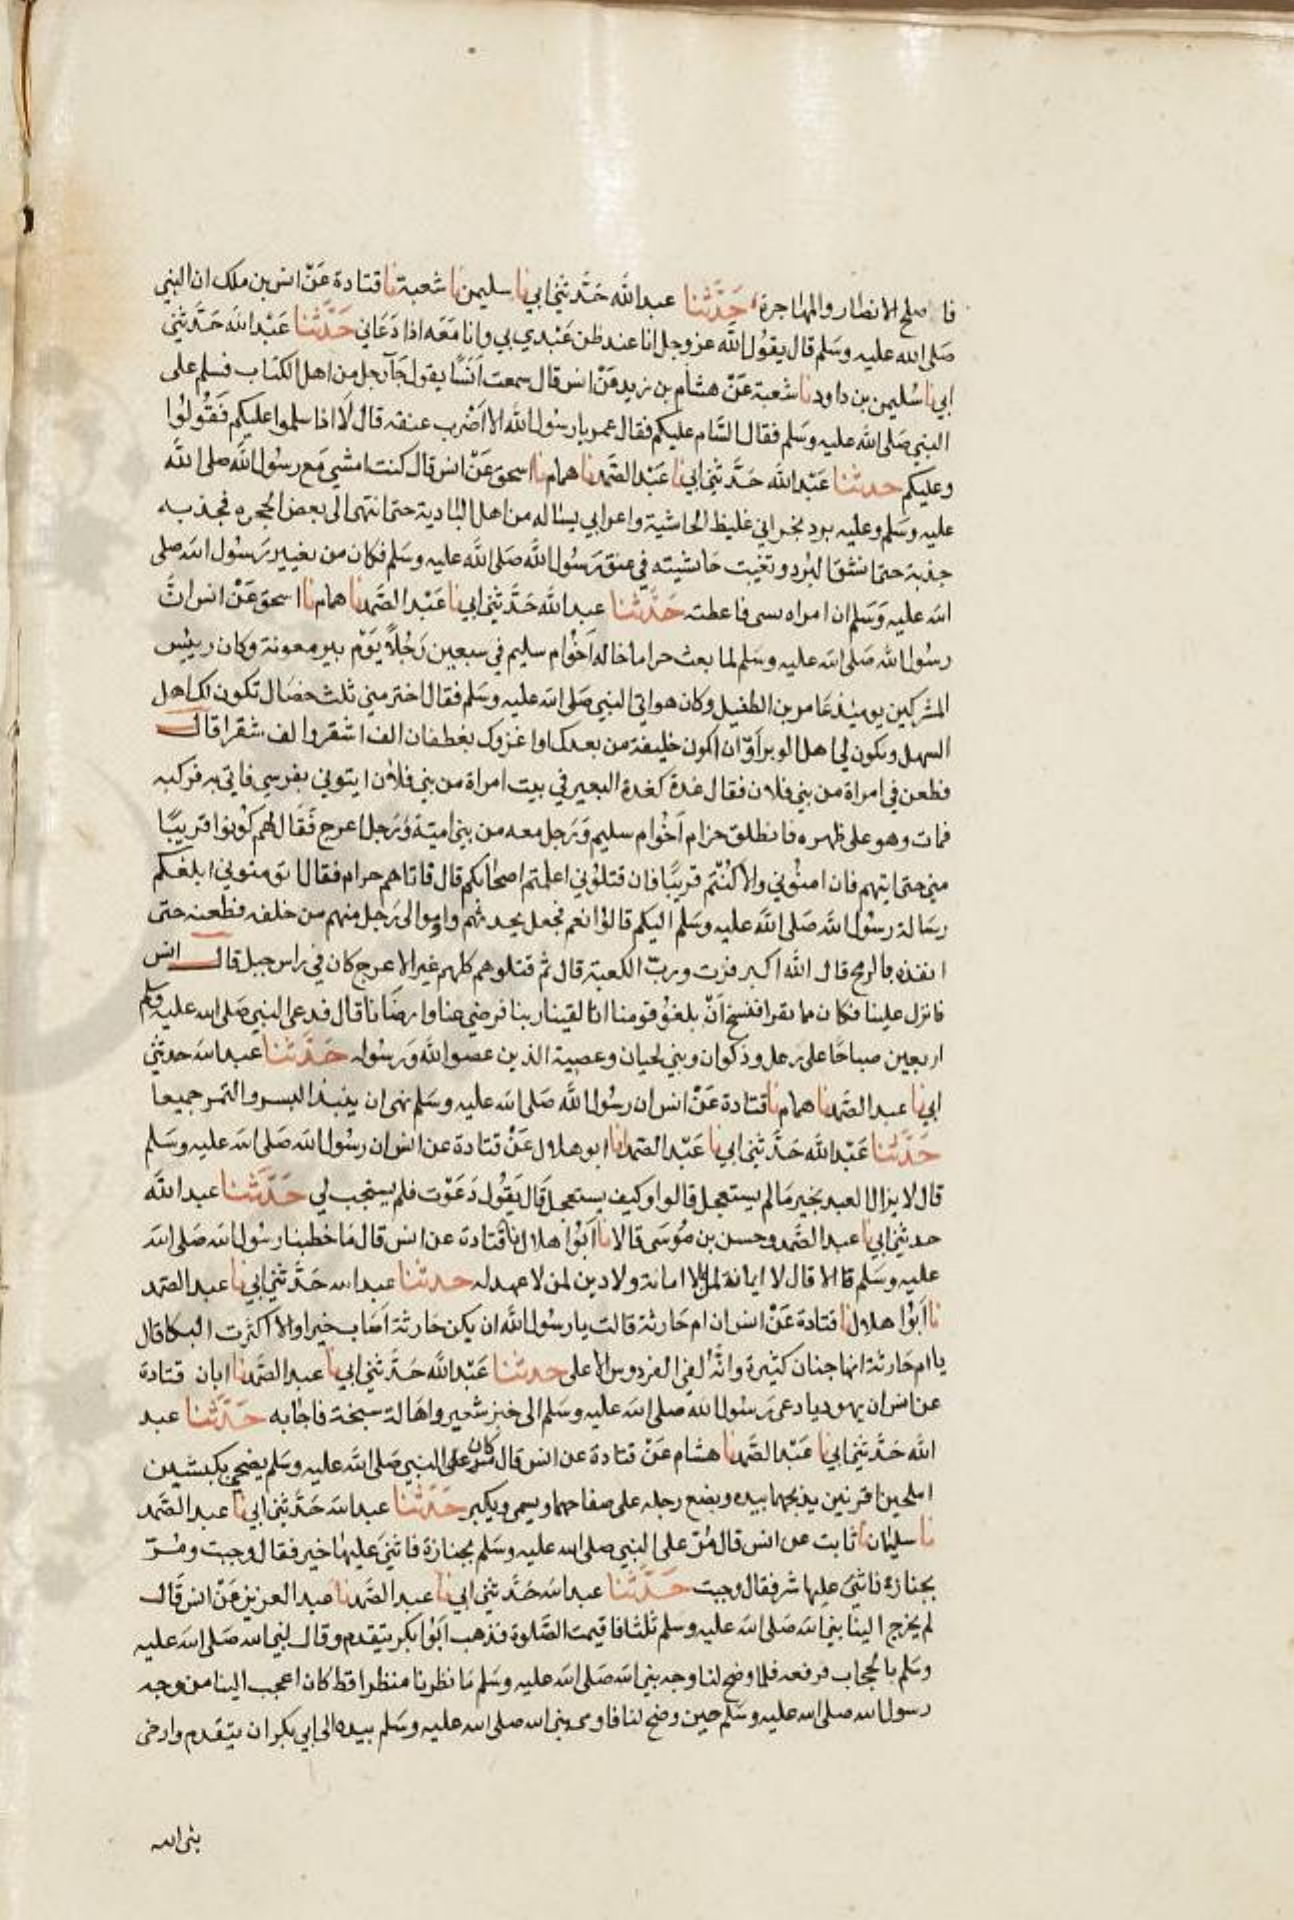 فا صلح الانصار والمهاجرة حَدَّثنا عبدالله حَدَّثني ابي نا سليمن نا شعبة نا قتادة عَنْ انس بن ملك ان النبي
صَلى الله عليه وسَلم قال يقوُل الله عز وجل انا عند ظن عَبْدي بي وانا مَعَه اذا دَعَاني حَدَّثنا عَبْدالله حَدَّثني
ابي نا سُليمن بن داود نا شعبة عَنْ هشام بن زيد عَنْ انس قال سمعت اَنَسًا يقول جَآ رجل من اهل الكتاب فسلم على
النبي صَلى الله عليه وسَلم فقال السَّام عليكم فقال عمر يا رسوُل الله الا اَضْرب عنقه قال لَا اذا سلموا عليكم فَقُولوُا
وعليكم حدثنا عَبْدالله حَدَّثني ابي نا عَبْدالصَّمد نا همام نا اسحق عَنْ انس قال كنت امشي مَع رسُول الله صلى الله
عليه وسَلم وعليه برد نجراني غليظ الحاشية واعرابي يساله من اهل البادية حتى انتهى الى بعض الحجره فجذبه
جذبة حتى انشق البُرد وتغيبت حَاشيته في عنق رَسُول الله صَلى الله عليه وسَلم فكان من تغيير رَسُول الله صلى
الله عليه وَسَلم ان امراه بسى فاعطته حَدَّثنا عبدالله حَدَّثني ابي نا عَبْدالصَّمد نا همام نا اسحق عَنْ انس انَّ
رسُول الله صَلى الله عليه وسَلم لما بعث حراما خاله اَخُوام سليم في سبعين رَجُلاً يَوْم بير معونة وكان رييس
المشركين يوميذ عَامر بن الطفيل وكان هو اتى النبي صَلى الله عليه وسَلم فقال اختر مني ثلث خصَال تكون لك اهل
السهل ويكون لي اهل الوبر اَوْ ان اكون خليفة من بعدك او اغزوك بغطفان الف اشقر والف شقرا قال
فطعن في امراة من بني فلان فقال غدة كغدة البعير في بيت امراة من بني فلان ايتوني بفرسي فاتى به فركبه
فمات وهو على ظهره فانطلق حرام اَخُوام سليم وَرَجل معه من بني اميّة وُرَجل اعرج فَقَال لهم كوُنوا قريبًا
مني حتى اتيهم فان امنوُني والا كنُتْم قريبًا فان قتلوُني اعلمتم اصحابكم قال فاتاهم حرام فقال اتؤمنوني ابلغكم
رسَالة رسوُل الله صَلى الله عليه وسَلم اليكم قالوُا نعم فجعل يحدثهم واوموا الى رَجل منهم من خلفه فطعنه حتى
انفذه بالرمح قال الله اكبر فزت وربّ الكعبة قال ثم قتلوهم كلهم غير الاعرج كان في راس جبل قال انس
فانزل علينا فكان مما يقرا فنسخ اَنْ بلغوُ قومنا انا لقينا ربنا فرضي عنا وارضَانا قال فدعى النبي صَلى الله عليه وسلم
اربعين صباحًا على رعل وذكوان وبني لحيان وعصية الذين عصوا الله وَرسوله حَدَّثنا عبدالله حدثني
ابي نا عبدالصَّمد نا همام نا قتادة عَنْ انس ان رسوُل الله صَلى الله عليه وسَلم نهى ان ينبذ البسر والتمر جميعا
حَدَّثنا عَبْدالله حَدَّثني ابي نا عَبْد الصَّمد نا ابوهلال عَنْ قتادة عن انس ان رسوُل الله صَلى الله عليه وسَلم
قال لا يزال العبد بخير مَا لم يستعجل قالوا وكيف يستعجل قَال يَقُول دَعَوْت فلم يستجب لي حَدَّثنا عبدالله
حدثني ابي نا عبدالصَّمد وحسن بن مُوسَى قالا نا اَبوُا هلال نا قتادة عن انس قال مَا خطبنا رسُول الله صَلى الله
عليه وسَلم قالا الا قال لا ايمان لمن لا امانة له ولا دين لمن لا عهد له حدثنا عبدالله حَدَّثني ابي نا عبدالصَّمد
نا اَبوُا هلال نا قتادة عَنْ انس ان ام حَارثة قالت يا رسُول الله ان يكن حَارثة اَصَاب خيرا والا اكثرت البكا قال
يا ام حَارثة انها جنان كثيرة وانَّه لفي الفردوس الاعلى حدثنا عَبْدالله حَدَّثني ابي نا عبدالصَّمد نا ابان قتادة
عن انس ان يهوديا دعى رَسوُل الله صَلى الله عليه وسَلم الى خبز شعير واهَالة سنخة فاجابه حَدَّثنا عبد
الله حَدَّثني ابي نا عَبْد الصَّمد نا هشام عَنْ قتادة عن انس قال كان النبي صَلى الله عليه وسَلم يضحي بكبشين
املحين اقرنين يذبحهما بيده ويضع رجله على صفاحهما ويسمي ويكبر حَدَّثنا عبدالله حَدَّثني ابي نا عبدالصَّمد
نا سليمان نا ثابت عن انس قال مُرّ على النبي صلى الله عليه وسَلم بجنازة فاثنى عليها خير فقال وجبت ومُرّ
بجنازة فاثنى عليها شر فقال وجبت حَدَّثنا عبدالله حَدَّثني ابي نا عبدالصَّمد نا عبدالعزيز عَنْ انس قَال
لم يخرج الينا نبي الله صَلى الله عليه وسلم ثلثا فاقيمت الصَّلوة فذهب ابَوُا بكر يتقدم وقال نبي الله صَلى الله عليه
وسَلم بالحجاب فرفعه فلما وضح لنا وجه نبي الله صَلى الله عليه وسَلم مَا نظرنا منظرا قط كان اعجب الينا من وجه
رسول الله صلى الله عليه وسَلم حين وضح لنا فاومى نبي الله صلى الله عليه وسَلم بيده الى ابي بكر ان يتقدم وارخى
نبي الله